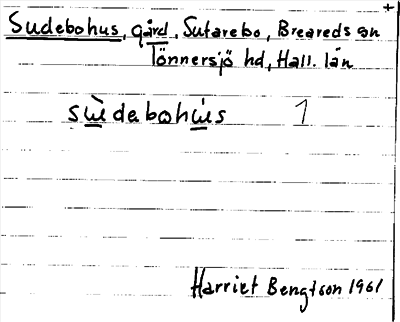 Sudebohus, gård, Sutarebo, Breareds sn
Tönnersjö hd, Hall. län
sùdebohùs 1
Harriet Bengtson 1961